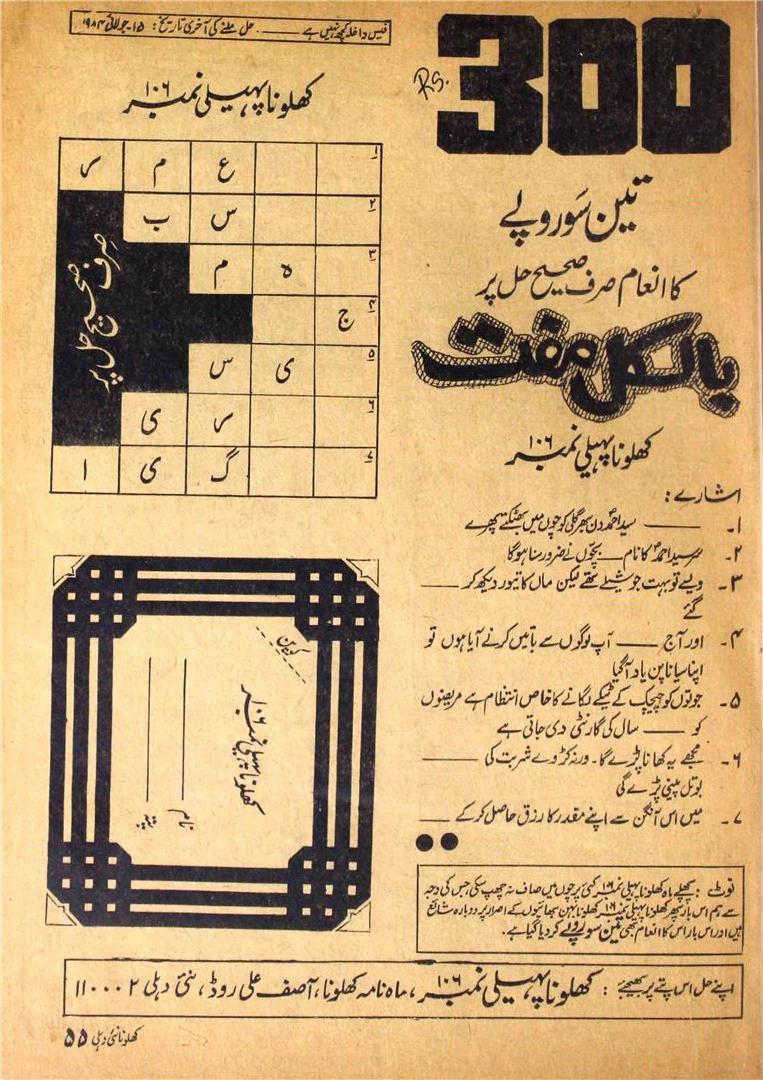 فیس داخلہ کچھ نہیں ہے ـــــ حل ملنے کی آخری تاریخ: ۱۵-جولائی ۱۹۸۴
Rs. 300
تین سَو روپے
کا انعام صرف صحیح حل پر
بالکل مفت
کھلونا پہیلی نمبر ۱۰۶
اشارے:
۱۔ ـــــ سید احمد دن بھر گلی کوچوں میں بھٹکتے پھرے
۲۔ سرسید احمدؒ کا نام ـــــ بچّوں نے ضرور سنا ہوگا
۳۔ ویسے تو بہت جوشیلے تھے لیکن ماں کا تیور دیکھ کر ـــــ
گئے
۴۔ اور آج ـــــ آپ لوگوں سے باتیں کرنے آیا ہوں تو
اپنا سیانا پن یاد آگیا
۵۔ جوتوں کو چیچک کے ٹیکے لگانے کا خاص انتظام ہے مریضوں
کو ـــــ سال کی گارنٹی دی جاتی ہے
۶۔ مجھے یہ کھانا پڑے گا۔ ورنہ کڑوے شربت کی ـــــ
بوتل پینی پڑے گی
۷۔ میں اس آنگن سے اپنے مقدر کا رزق حاصل کرکے ـــــ
نوٹ: پچھلے ماہ کھلونا پہیلی نمبر ۱۰۶ کئی پرچوں میں صاف نہ چھپ سکی، جس کی وجہ
سے ہم اس بار پھر کھلونا پہیلی نمبر ۱۰۶ کھلونا بہن بھائیوں کے اصرار پر دوبارہ شائع
ہیں اور اس بار اس کا انعام بھی تین سو روپے کر دیا گیا ہے۔
کھلونا پہیلی نمبر ۱۰۶
۱ ع م ر
۲ س ب
۳ ہ م
۴ ج
۵ ی س
۶ ر ی
۷ گ ی ا
صرف صحیح حل پر
کوپن
کھلونا پہیلی نمبر ۱۰۶
نام
پتہ
اپنے حل اس پتے پر بھیجئے: کھلونا پہیلی نمبر ۱۰۶، ماہ نامہ کھلونا، آصف علی روڈ، نئی دہلی ۱۱۰۰۰۲
کھلونا نئی دہلی ۵۵